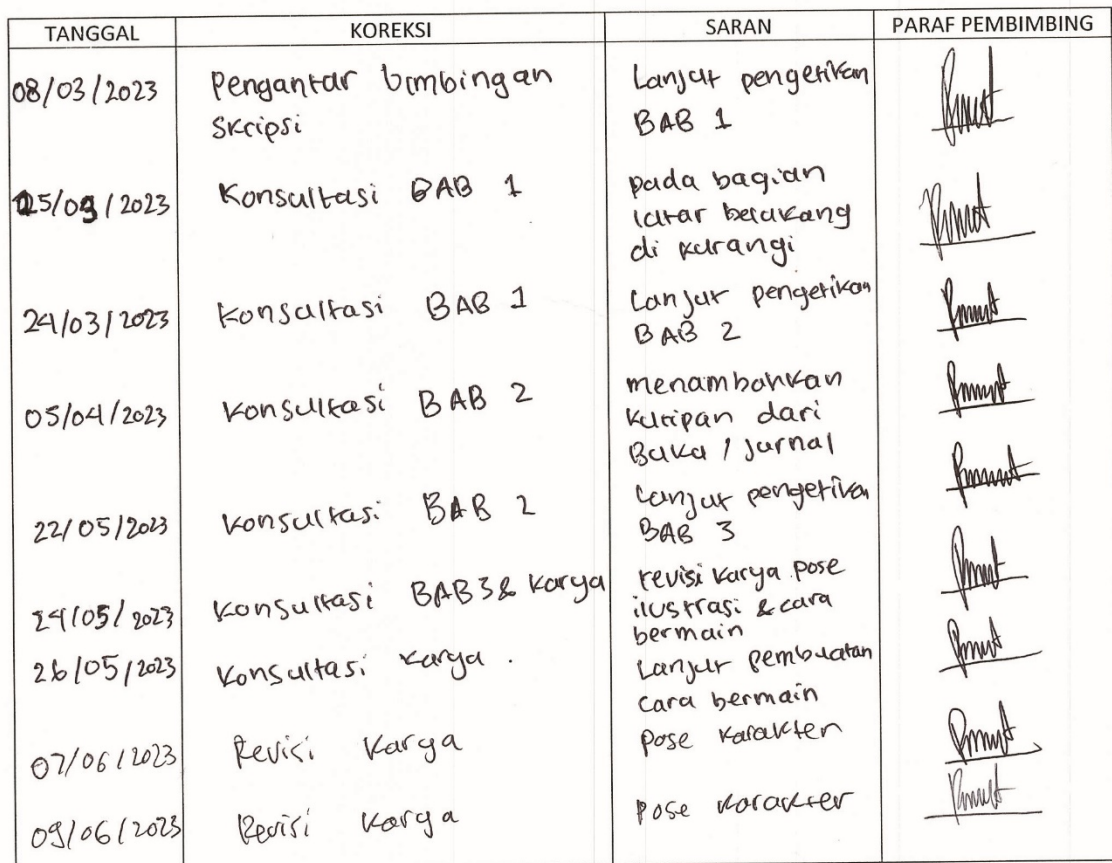 TANGGAL KOREKSI SARAN PARAF PEMBIMBING
08/03/2023 Pengantar bimbingan Lanjut pengetikan
Skripsi BAB 1
/2023 Konsultasi BAB 1 pada bagian
latar belakang
di kurangi
24/03/2023 Konsultasi BAB 1 Lanjut pengetikan
BAB 2
05/04/2023 Konsultasi BAB 2 menambahkan
kutipan dari
Buku / Jurnal
22/05/2023 Konsultasi BAB 2 Lanjut pengetikan
BAB 3
24/05/2023 Konsultasi BAB 3 & Karya revisi karya pose
ilustrasi & cara
bermain
26/05/2023 Konsultasi karya. Lanjut pembuatan
cara bermain
07/06/2023 Revisi Karya Pose Karakter
09/06/2023 Revisi Karya Pose Karakter